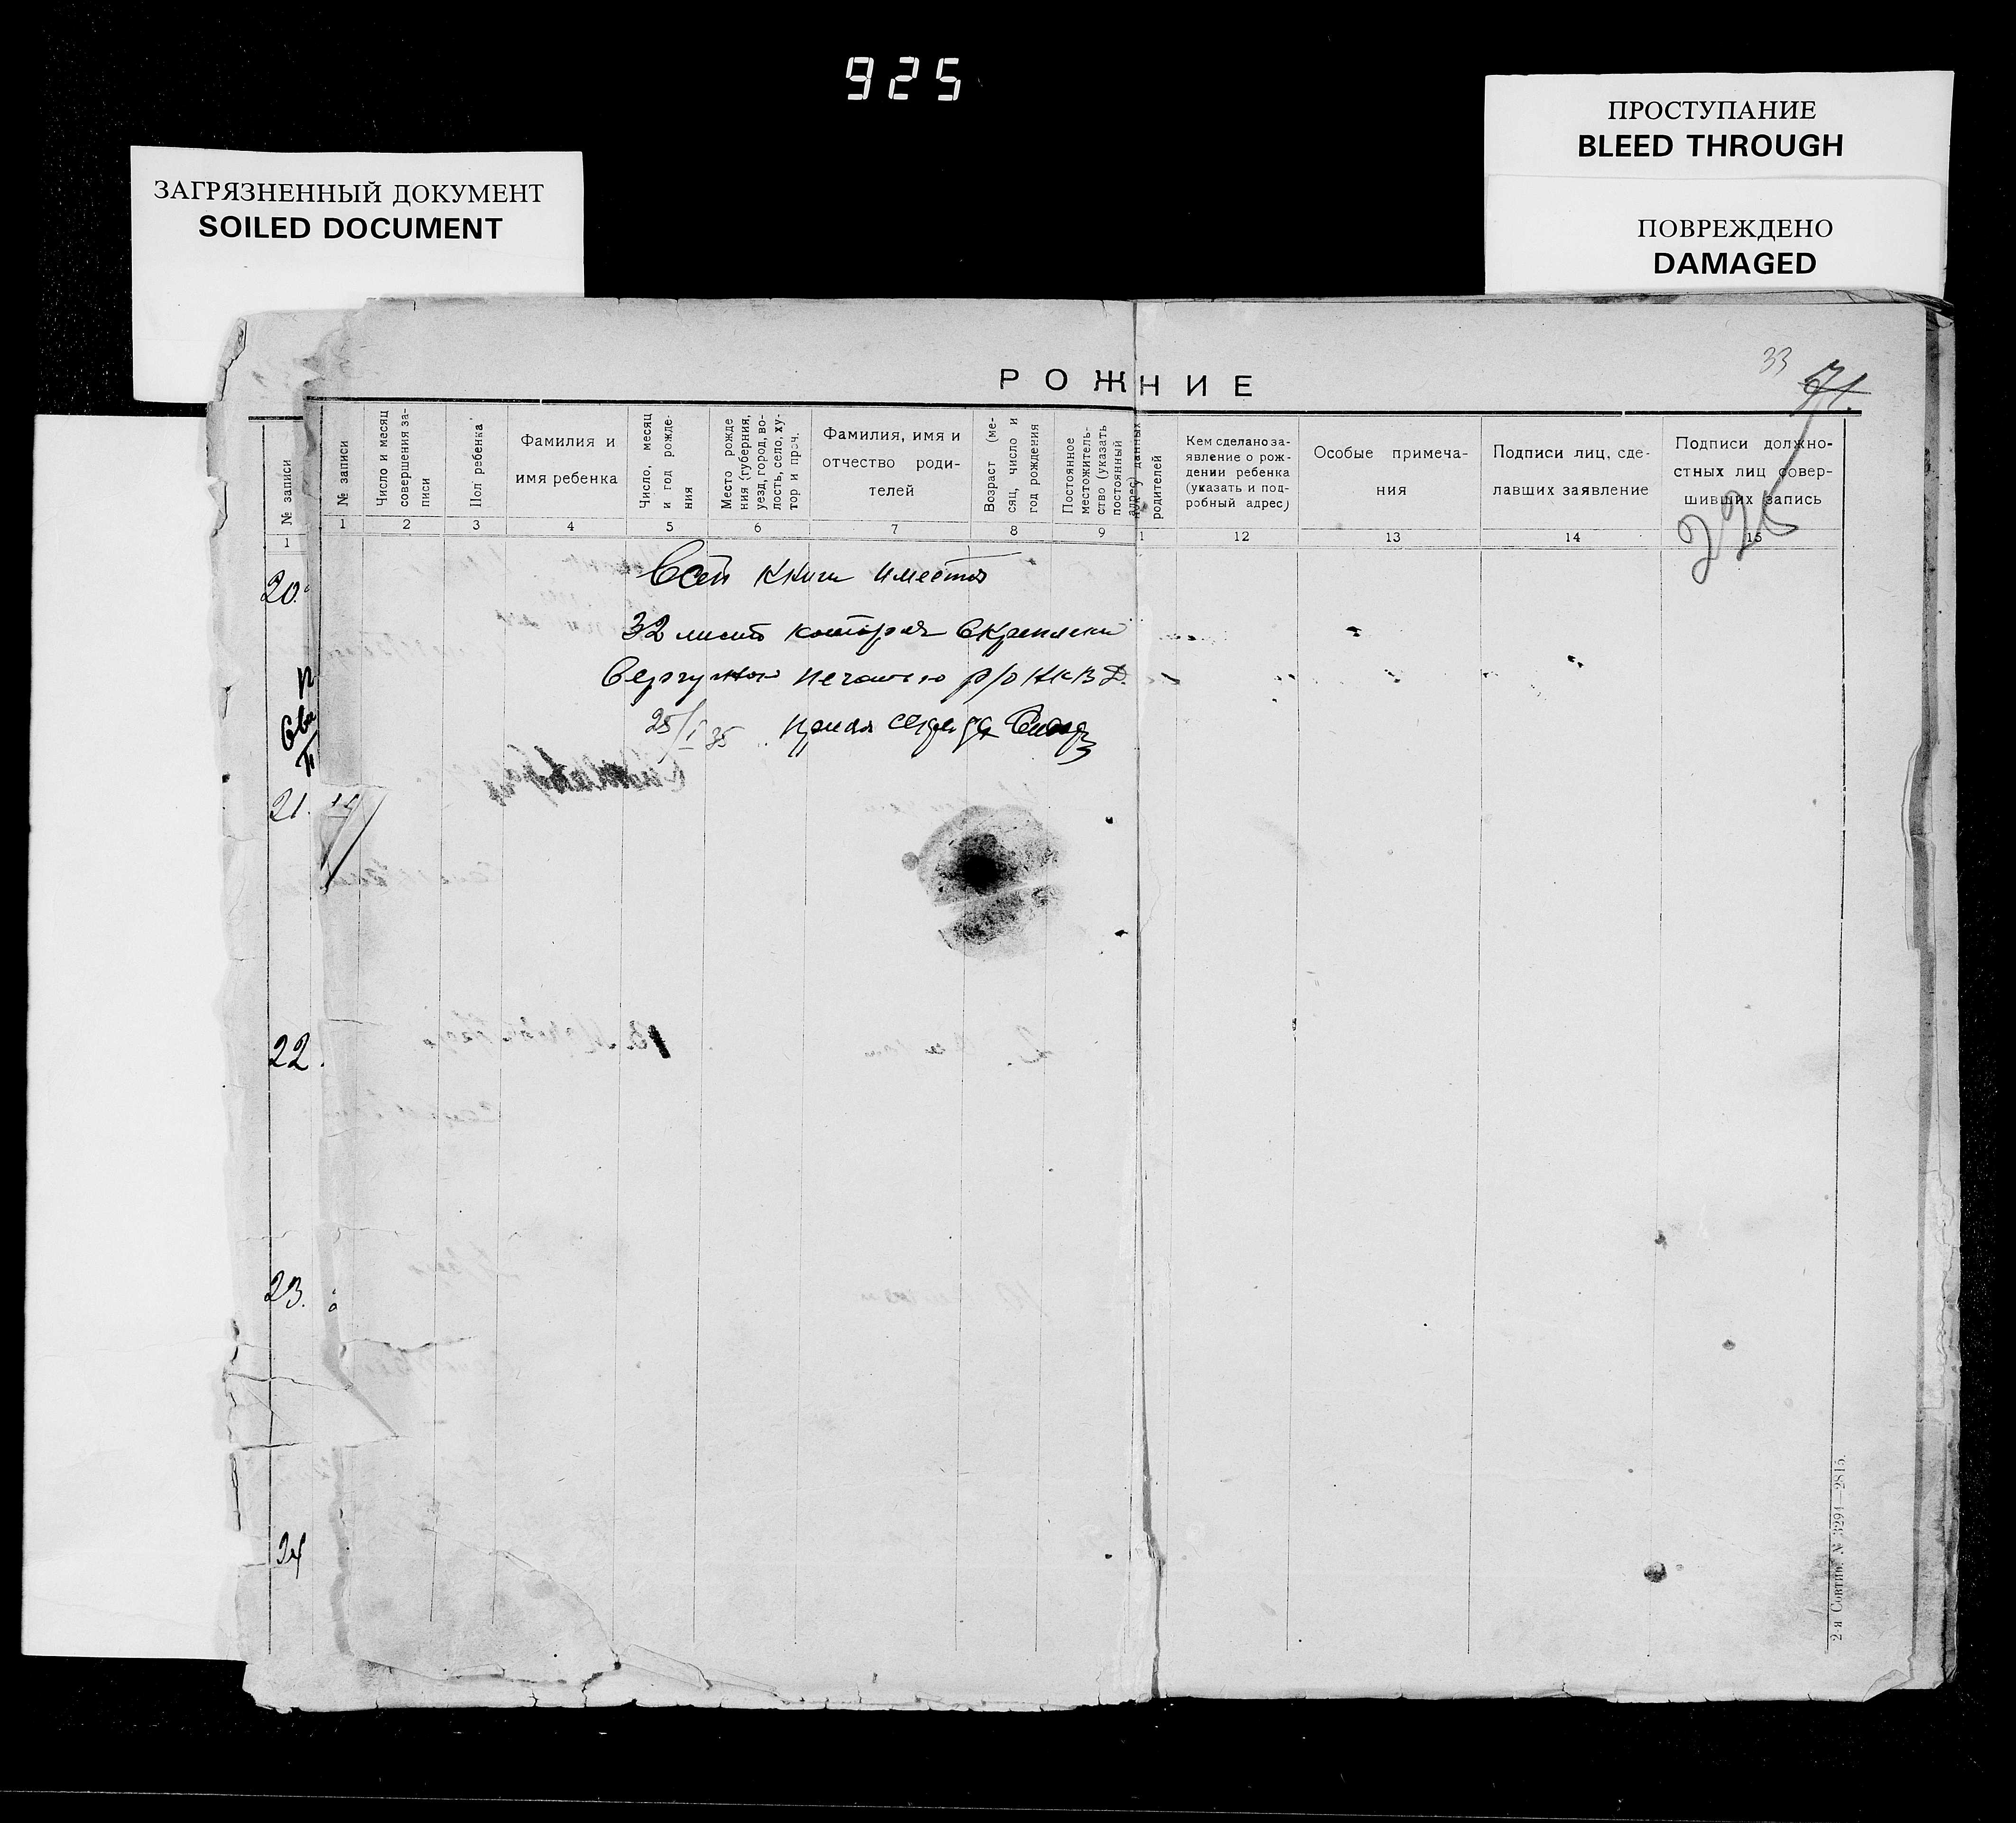 925
ЗАГРЯЗНЕННЫЙ ДОКУМЕНТ
SOILED DOCUMENT
ПРОСТУПАНИЕ
BLEED THROUGH
ПОВРЕЖДЕНО
DAMAGED
33
71.
РОЖНИЕ
№ записи
№ записи
Число и месяц
совершения за-
писи
Пол ребенка
Фамилия и
имя ребенка
Число, месяц
и год рожде-
ния
Место рожде
ния (губерния,
уезд, город, во-
лость, село, ху-
тор и проч.
Фамилия, имя и
отчество роди-
телей
Возраст (ме-
сяц, число и
год рождения
Постоянное
местожитель-
ство (указать
постоянный
адрес)
у данных
родителей
Кем сделано за-
явление о рож-
дении ребенка
(указать и под-
робный адрес)
Особые примеча-
ния
Подписи лиц, сде-
лавших заявление
Подписи должно-
стных лиц совер-
шивших запись
1 1 2 3 4 5 6 7 8 9 1 12 13 14 15
226
20.
Всей книги имеется
32 листа которая скреплена
сергучной печатью р/о НКВД.
25/I 35
21.
22.
23.
24
2-я Совтип. № 3294—2815.